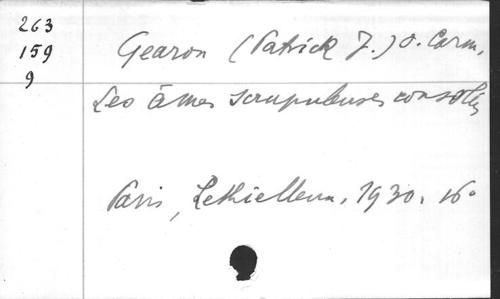 263
159
9
Gearon (Patrick J.) O. Carm.
Les âmes scrupuleuses consolées
Paris, Lethielleux, 1930, 16°